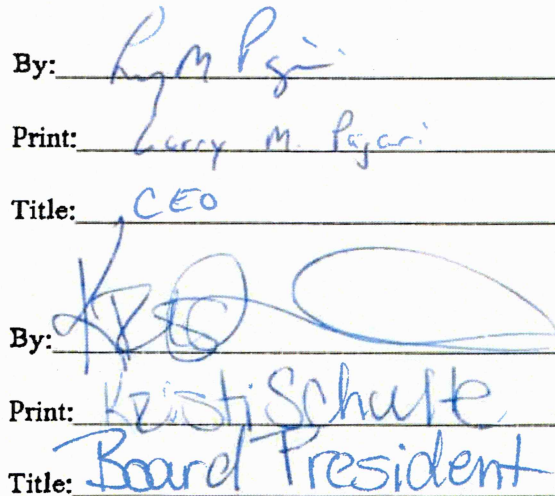 By:
Print: Larry M. Pagari
Title: CEO
By:
Print: Kristi Schulte
Title: Board President